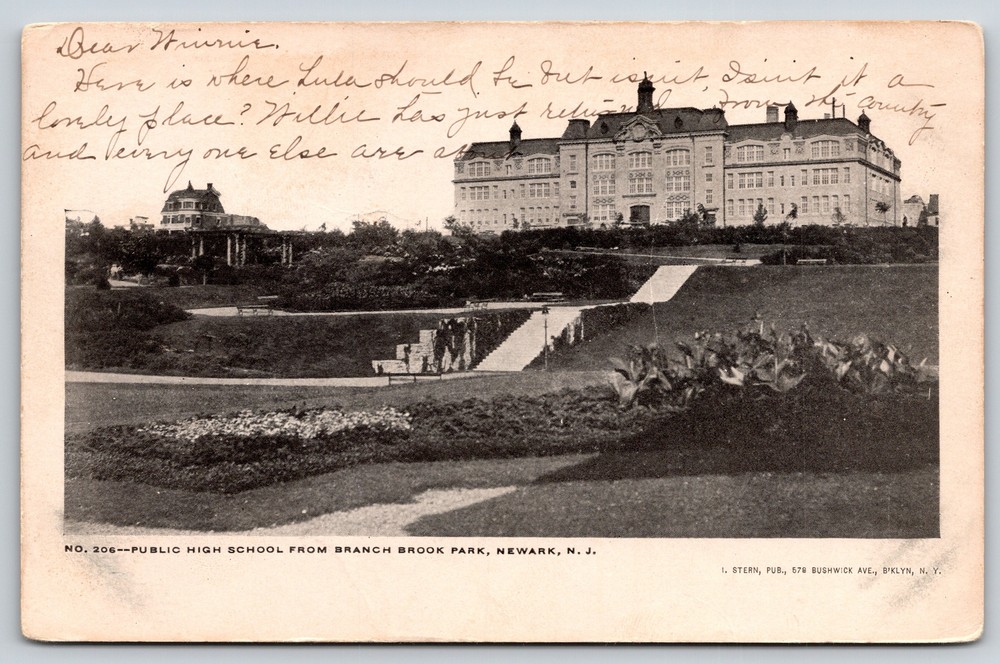 Dear Winnie.
Here is where Lula should be but isn't, Isn't it a
lovely place? Willie has just returned from the country
and every one else are at
NO. 206--PUBLIC HIGH SCHOOL FROM BRANCH BROOK PARK, NEWARK, N. J.
I. STERN, PUB., 578 BUSHWICK AVE., B'KLYN, N. Y.